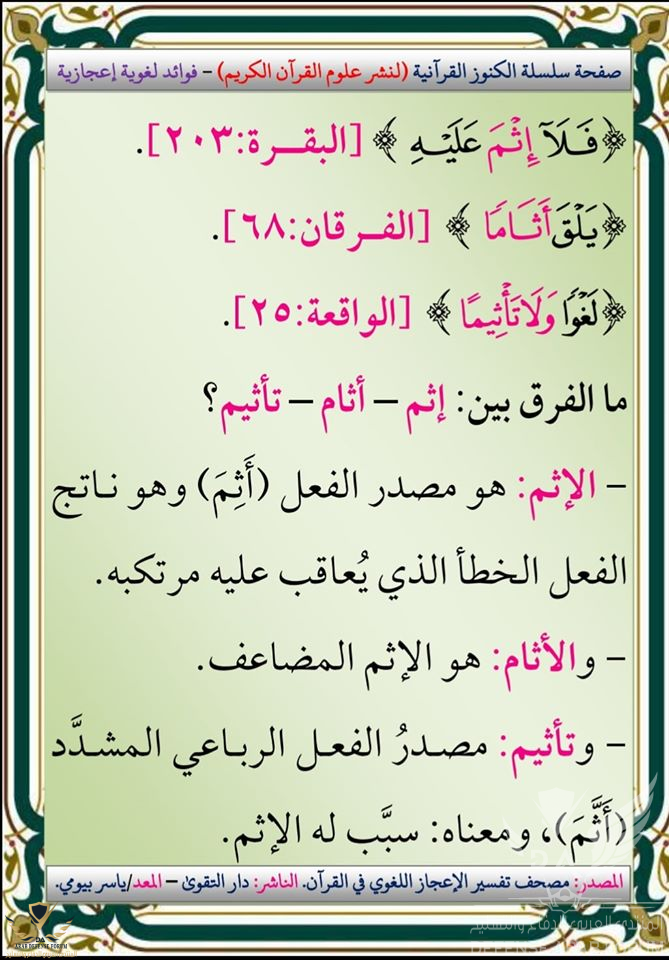 صفحة سلسلة الكنوز القرآنية (لنشر علوم القرآن الكريم) – فوائد لغوية إعجازية
﴿فَلَآ إِثْمَ عَلَيْهِ﴾ [البقرة:٢٠٣].
﴿يَلْقَ أَثَامًا﴾ [الفرقان:٦٨].
﴿لَغْوًا وَلَا تَأْثِيمًا﴾ [الواقعة:٢٥].
ما الفرق بين: إثم – أثام – تأثيم؟
– الإثم: هو مصدر الفعل (أَثِمَ) وهو ناتج
الفعل الخطأ الذي يُعاقب عليه مرتكبه.
– والأثام: هو الإثم المضاعف.
– وتأثيم: مصدرُ الفعل الرباعي المشدَّد
(أَثَّمَ)، ومعناه: سبَّب له الإثم.
المصدر: مصحف تفسير الإعجاز اللغوي في القرآن. الناشر: دار التقوى – المعد/ياسر بيومي.
المنتدى العربي للدفاع والتسليح
DEFENSE ARAB FORUM
ARAB DEFENSE FORUM